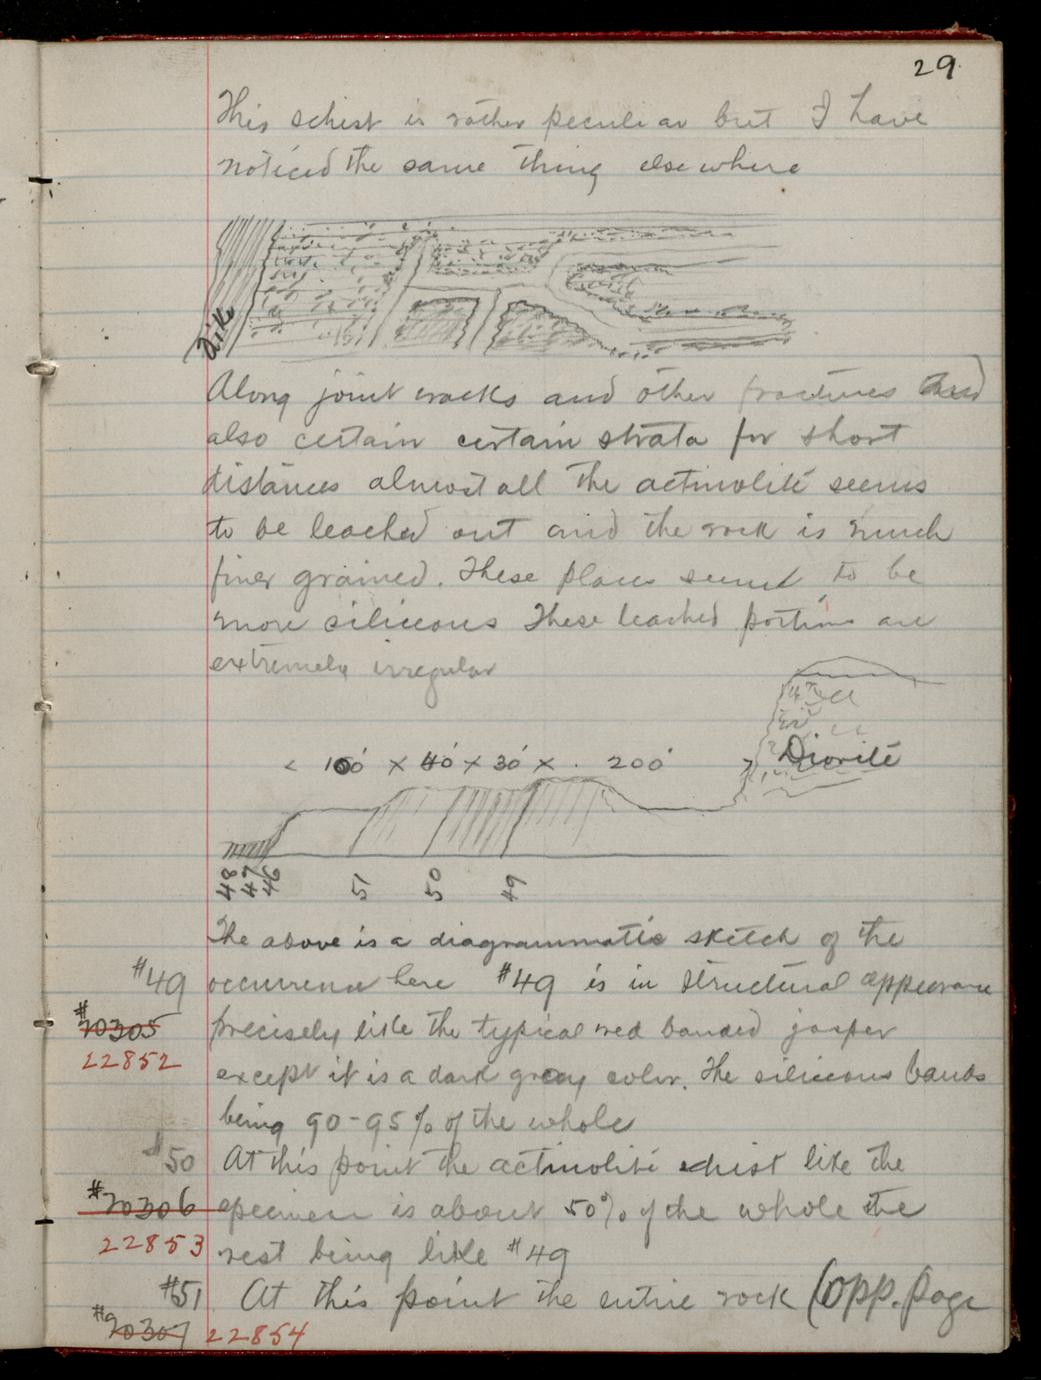 29
This schist is rather peculiar but I have
noticed the same thing elsewhere
Dike
Along joint cracks and other fractures and
also certain certain strata for short
distances almost all the actinolite seems
to be leached out and the rock is much
finer grained. These places seem to be
more siliceous These leached portions are
extremely irregular
< 100' x 40' x 30' x . 200' > Diorite
48 47 46 51 50 49
The above is a diagrammatic sketch of the
#49 occurrence here #49 is in structural appearance
#20305 precisely like the typical red banded jasper
22852
except it is a dark gray color. The siliceous bands
being 90-95% of the whole
#50 At this point the actinolite schist like the
#20306 specimen is about 50% of the whole the
22853 rest being like #49
#51 At this point the entire rock (opp. page
#20307 22854